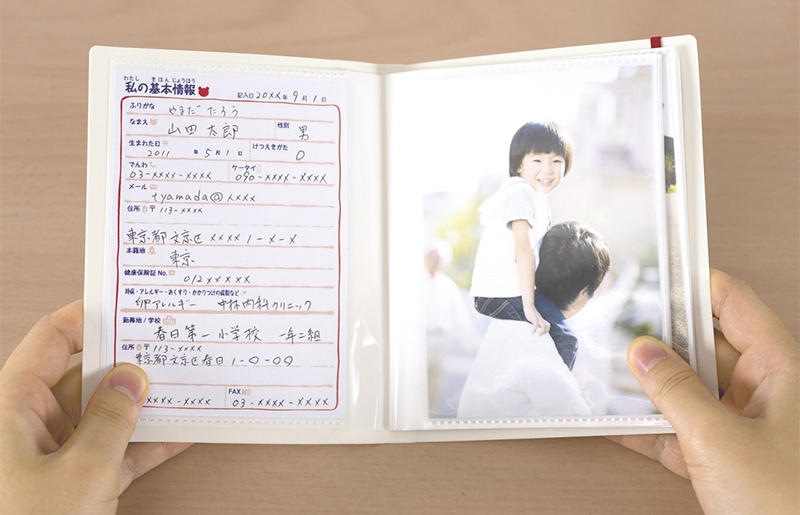 わたし きほんじょうほう
私の基本情報 記入日 20XX年 9月 1日
ふりがな やまだ たろう
なまえ 山田 太郎 性別 男
生まれた日 2011年 5月 1日 けつえきがた O
でんわ ケータイ
03-XXXX-XXXX 090-XXXX-XXXX
メール
tyamada@XXXX
住所 〒113-XXXX
東京都文京区XXXX 1-X-X
本籍地 東京
健康保険証 No. 012XXXXX
持病・アレルギー・おくすり・かかりつけの病院など
卵アレルギー 中林内科クリニック
勤務地/学校 春日第一小学校 一年二組
住所 〒113-XXXX
東京都文京区春日1-0-00
FAX
XXX-XXXX 03-XXXX-XXXX